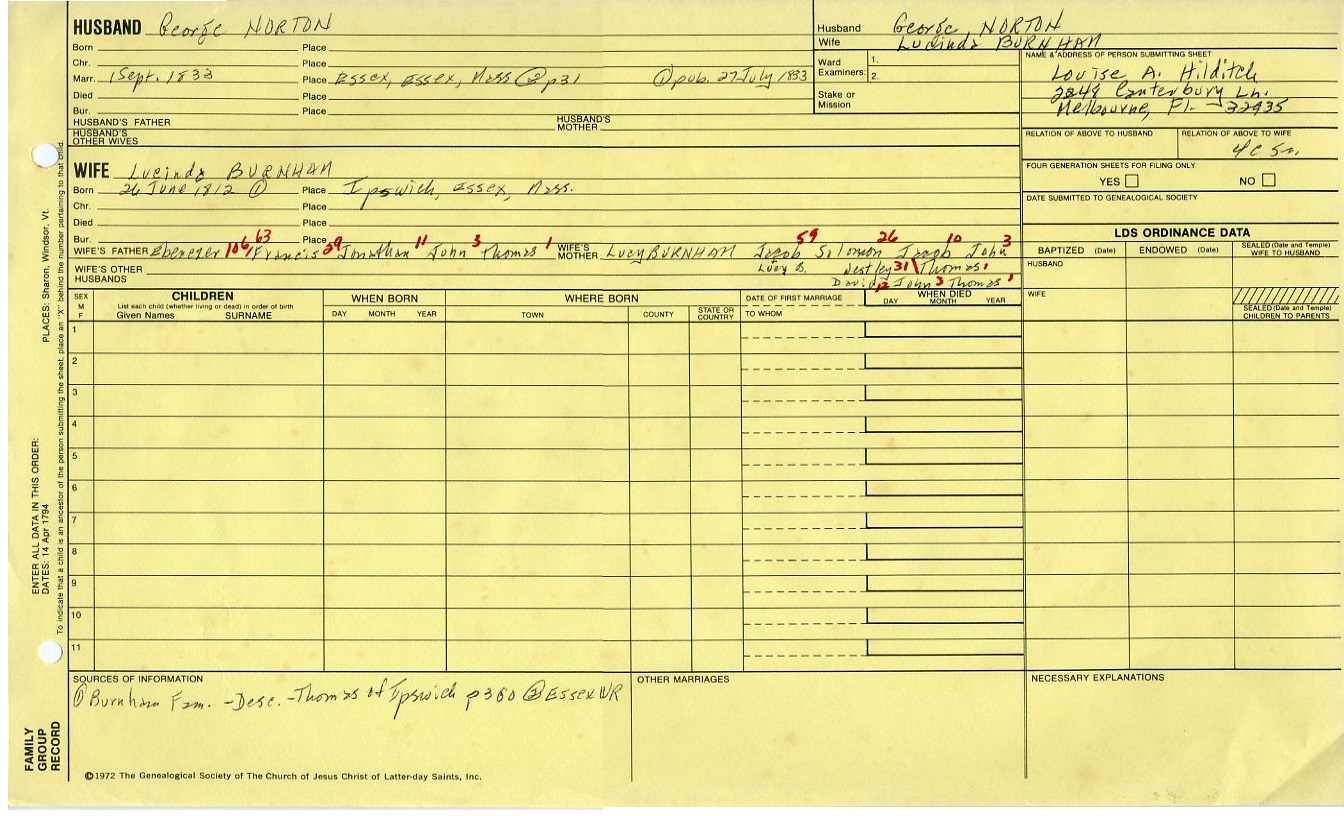 HUSBAND George NORTON
Born Place
Chr. Place
Marr. 1 Sept. 1833 Place Essex, Essex, Mass ② p31 ① pub. 27 July 1833
Died Place
Bur. Place
HUSBAND'S FATHER HUSBAND'S MOTHER
HUSBAND'S OTHER WIVES
Husband George NORTON
Wife Lucinda BURNHAM
Ward Examiners: 1.
2.
Stake or Mission
NAME & ADDRESS OF PERSON SUBMITTING SHEET
Louise A. Hilditch
2248 Canterbury Ln.
Melbourne, Fl. 32935
RELATION OF ABOVE TO HUSBAND RELATION OF ABOVE TO WIFE
4C 5r.
FOUR GENERATION SHEETS FOR FILING ONLY
YES NO
DATE SUBMITTED TO GENEALOGICAL SOCIETY
WIFE Lucinda BURNHAM
Born 26 June 1812 ① Place Ipswich, Essex, Mass.
Chr. Place
Died Place
Bur. Place
WIFE'S FATHER Ebenezer 106 Francis 63 Jonathan 29 John 11 Thomas 3 1 WIFE'S MOTHER Lucy BURNHAM Jacob 59 Solomon 26 Jacob 10 John 3
Lucy B. Westley 31 Thomas 1
David 12 John 3 Thomas 1
WIFE'S OTHER HUSBANDS
LDS ORDINANCE DATA
BAPTIZED (Date) ENDOWED (Date) SEALED (Date and Temple) WIFE TO HUSBAND
HUSBAND
WIFE
SEALED (Date and Temple) CHILDREN TO PARENTS
SEX M F
CHILDREN
List each child (whether living or dead) in order of birth
Given Names SURNAME
WHEN BORN
DAY MONTH YEAR
WHERE BORN
TOWN COUNTY STATE OR COUNTRY
DATE OF FIRST MARRIAGE
TO WHOM
WHEN DIED
DAY MONTH YEAR
1
2
3
4
5
6
7
8
9
10
11
SOURCES OF INFORMATION
① Burnham Fam. - Desc. - Thomas of Ipswich p360 ② Essex VR
OTHER MARRIAGES
NECESSARY EXPLANATIONS
©1972 The Genealogical Society of The Church of Jesus Christ of Latter-day Saints, Inc.
FAMILY GROUP RECORD
ENTER ALL DATA IN THIS ORDER:
DATES: 14 Apr 1794
PLACES: Sharon, Windsor, Vt.
To indicate that a child is an ancestor of the person submitting the sheet, place an "X" behind the number pertaining to that child.